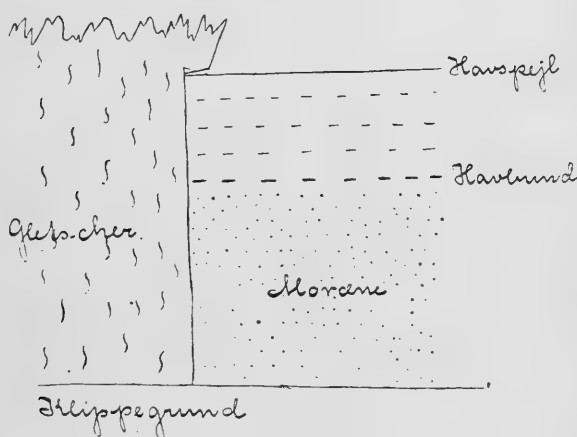 Havspejl
Havbund
Gletscher.
Moræne
Klippegrund